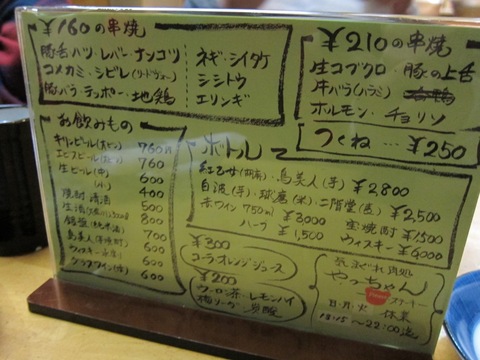 ¥160の串焼
豚舌・ハツ・レバー・ナンコツ
コメカミ・シビレ(リードヴォー)
豚バラ・テッポー・地鶏
ネギ・シイタケ
シシトウ
エリンギ
¥210の串焼
生コブクロ・豚の上舌
牛バラ(ハラミ)
ホルモン・チョリソ
つくね…¥250
お飲みもの
キリンビール(大ビン) 760円
エビスビール 760
生ビール(中) 600
(小) 400
焼酎 清酒 500
生酒 800
700
500
グラスワイン 600
ボトル
鳥美人(芋) ¥2800
白波(芋)・球磨(米)・二階堂(麦) ¥2,500
赤ワイン 750ml ¥3,000
ハーフ ¥1,500
宝焼酎 ¥1,500
ウィスキー ¥4000
¥300
コーラ・オレンジジュース
¥200
ウーロン茶・レモンハイ
気まぐれ肉処
やっちゃん
日・月・火 休業
18:15〜22:00迄